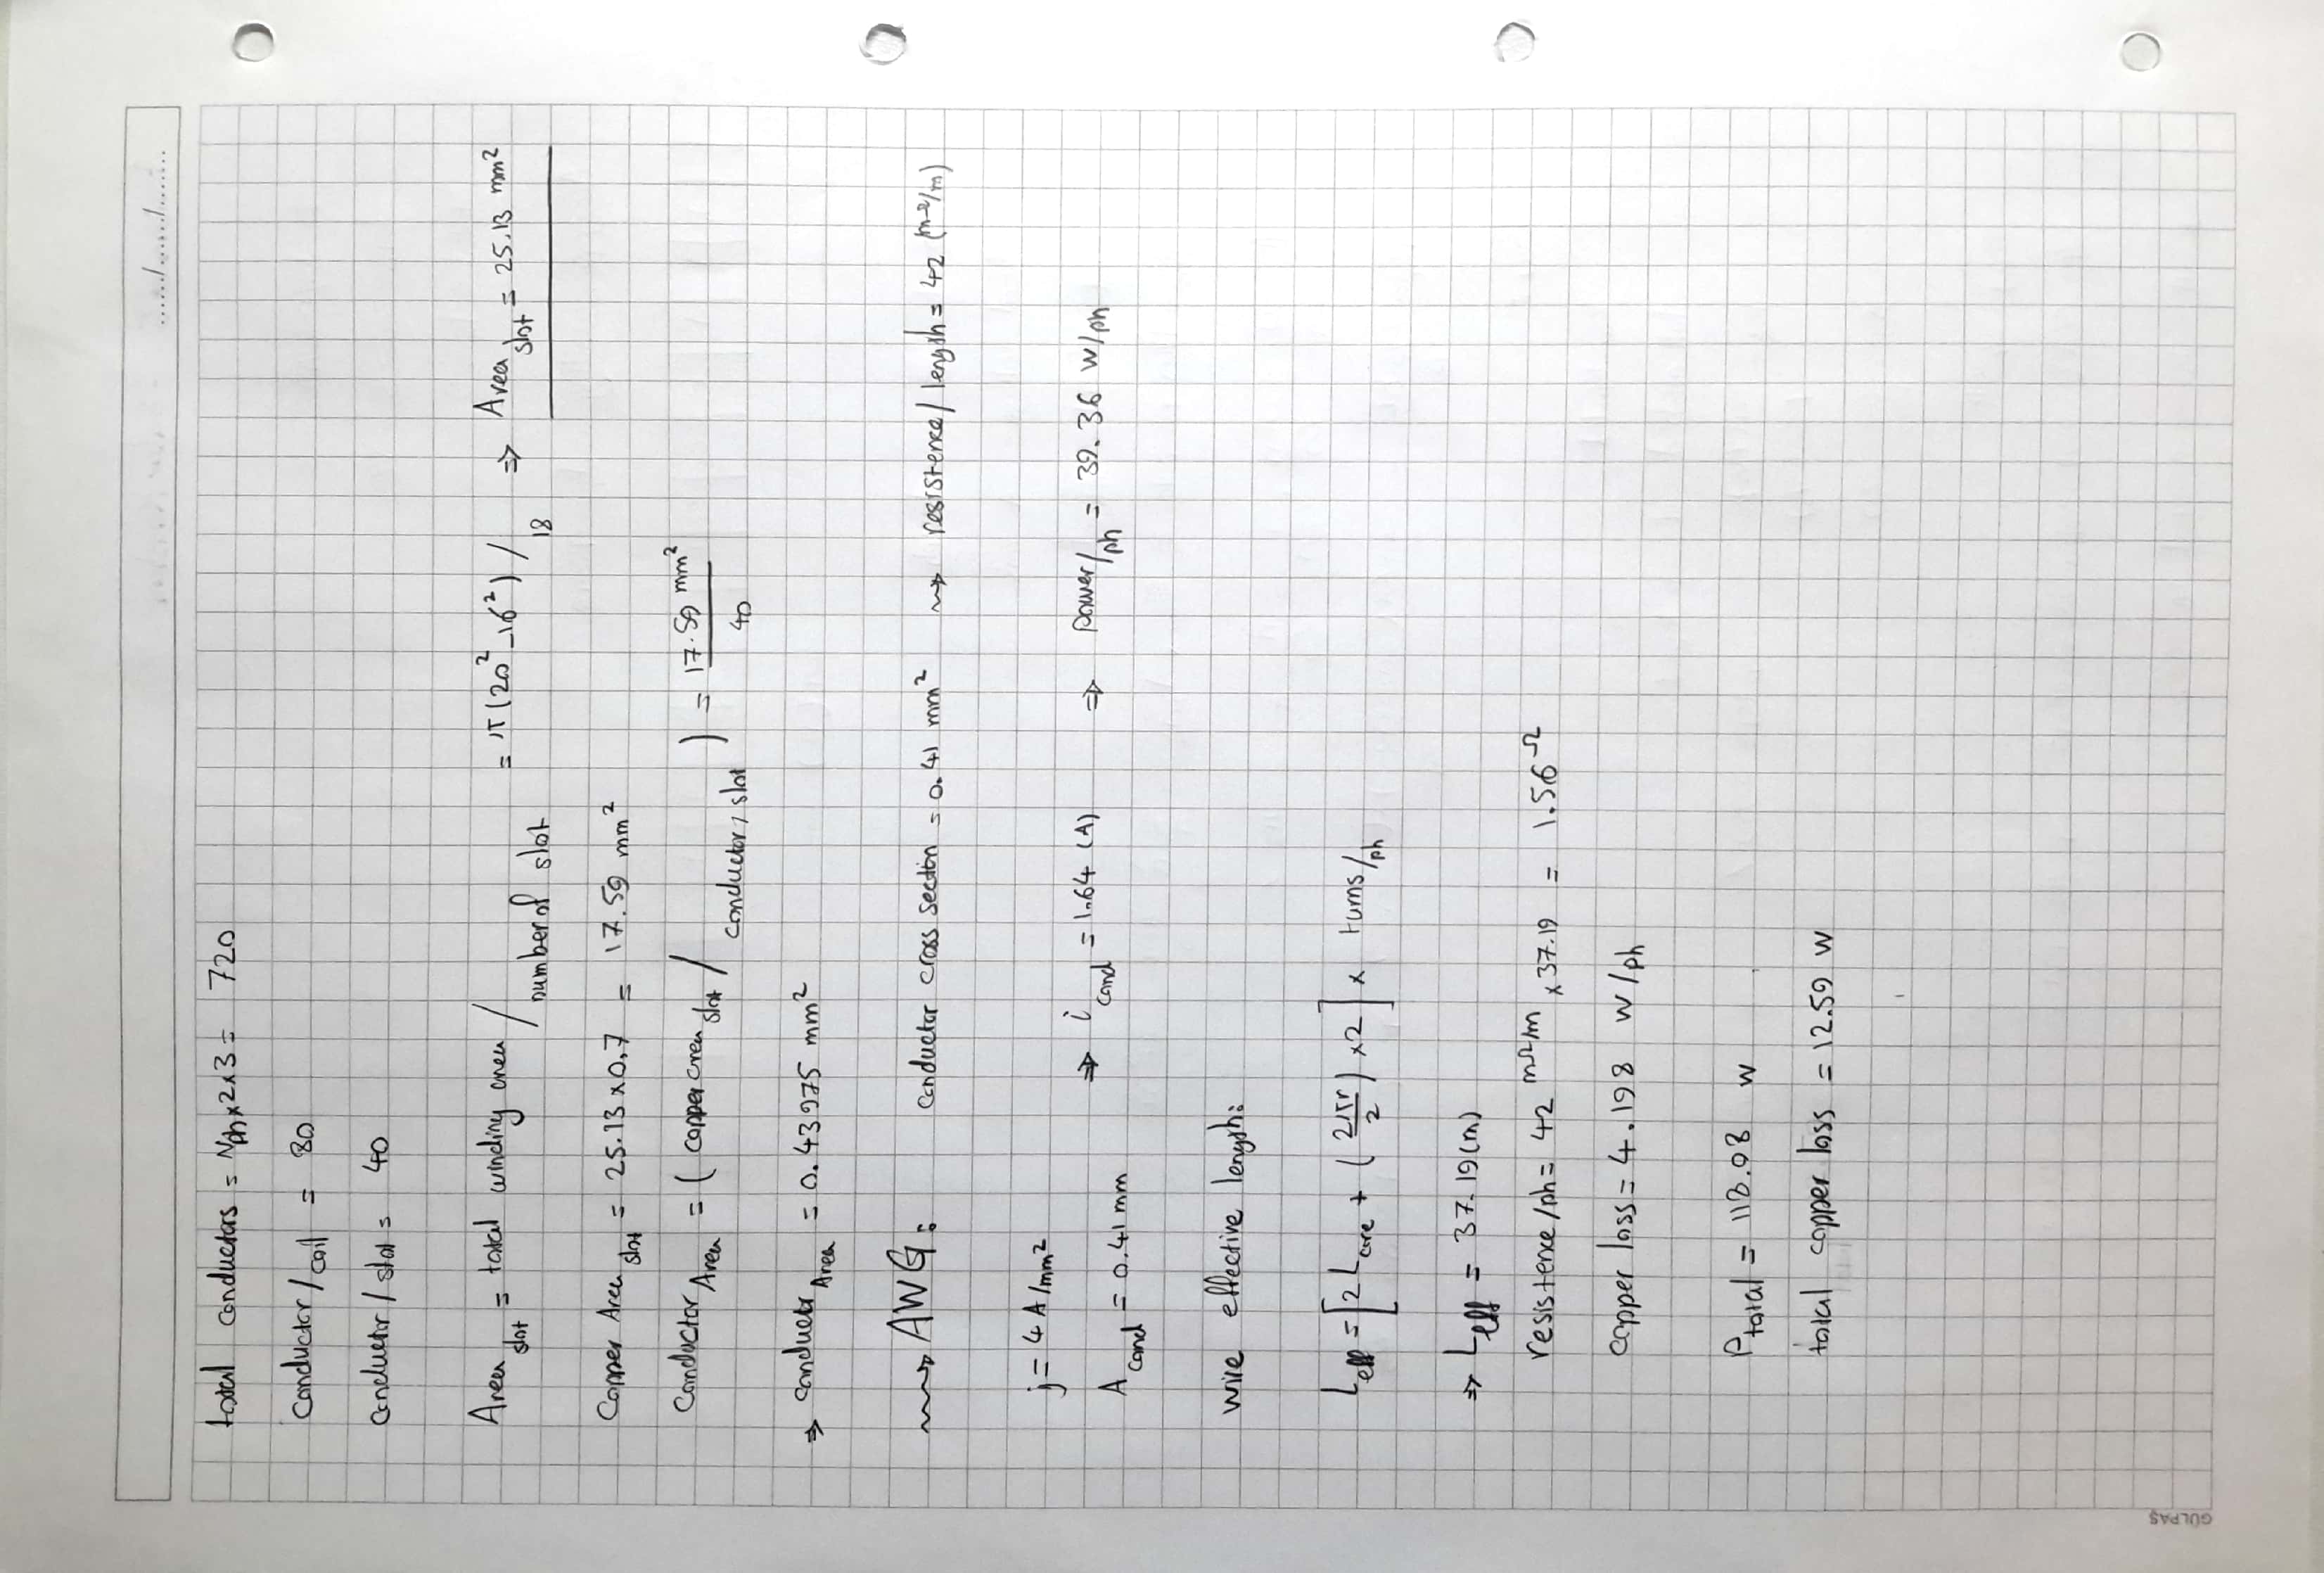 ....../....../.......
total conductors = Nph x 2 x 3 = 720
conductor / coil = 80
conductor / slot = 40
Area slot = total winding area / number of slot = π (20² - 16²) / 18 ⇒ Area slot = 25.13 mm²
Copper Area slot = 25.13 x 0.7 = 17.59 mm²
Conductor Area = ( copper area slot / conductor / slot ) = 17.59 mm² / 40
⇒ conductor Area = 0.43975 mm²
⇝ AWG: conductor cross section = 0.41 mm² ⇝ resistence / length = 42 (mΩ/m)
j = 4 A/mm²
A cond = 0.41 mm ⇒ i cond = 1.64 (A) ⇒ power/ph = 39.36 W/ph
wire effective length:
Leff = [2 Lcore + (2πr/2) x 2] x turns/ph
⇒ Leff = 37.19 (m)
resistence / ph = 42 mΩ/m x 37.19 = 1.56 Ω
copper loss = 4.198 W / ph
Ptotal = 118.08 W
total copper loss = 12.59 W
GÜLPAŞ